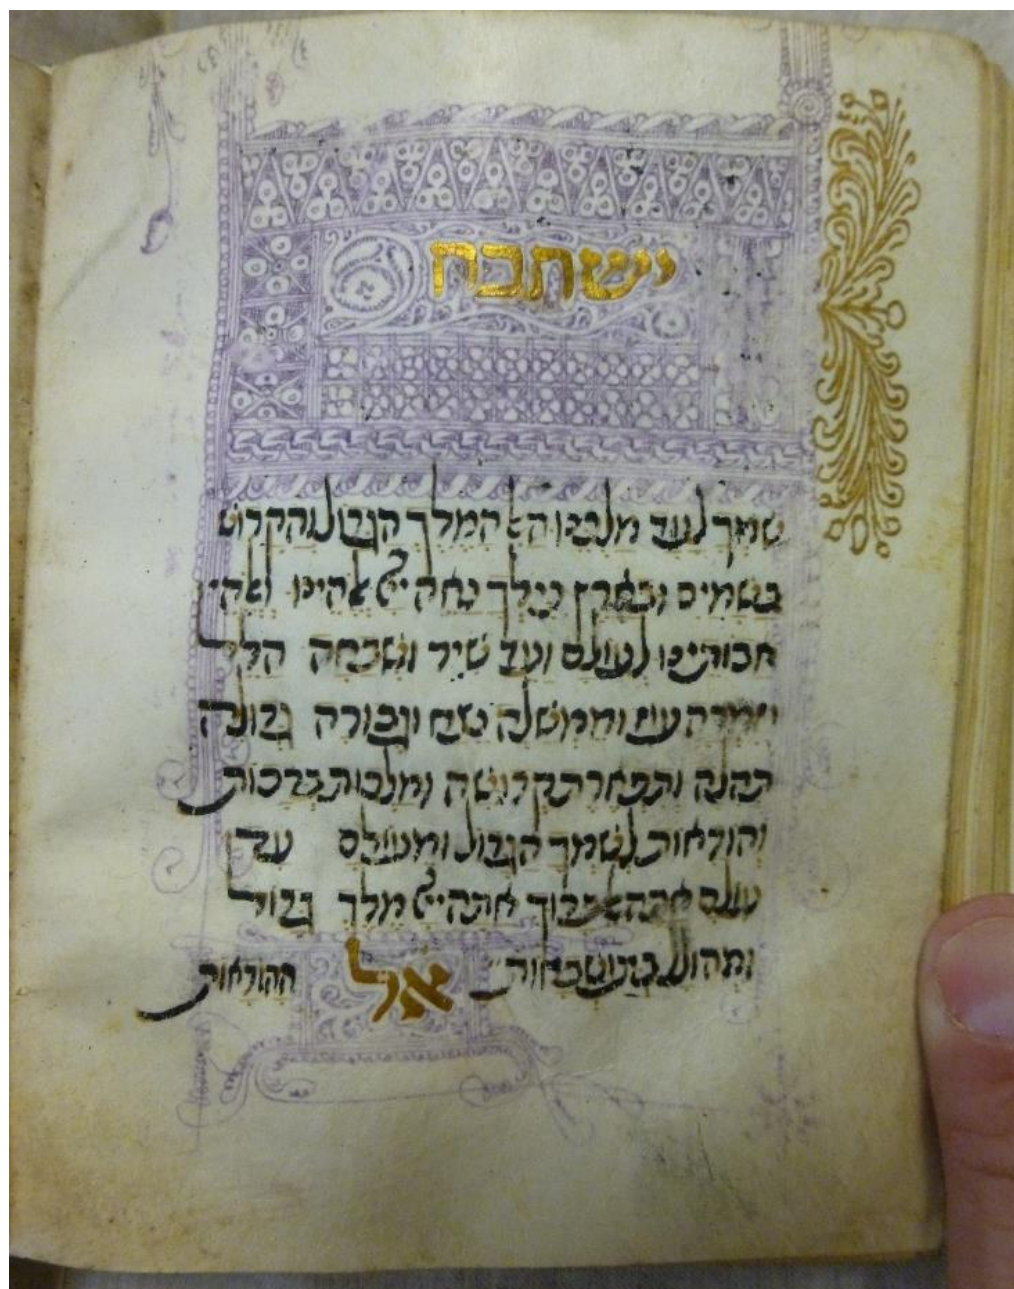 ישתבח
שמך לעד מלכנו האל המלך הגדול והקדוש
בשמים ובארץ כי לך נאה יי אלהינו ואלהי
אבותינו לעולם ועד שיר ושבחה הלל
וזמרה עוז וממשלה נצח וגבורה גדולה
תהלה ותפארת קדושה ומלכות ברכות
והודאות לשמך הגדול ומעולם עד
עולם אתה אל ברוך אתה יי מלך גדול
ומהולל בתושבחות אל ההודאות